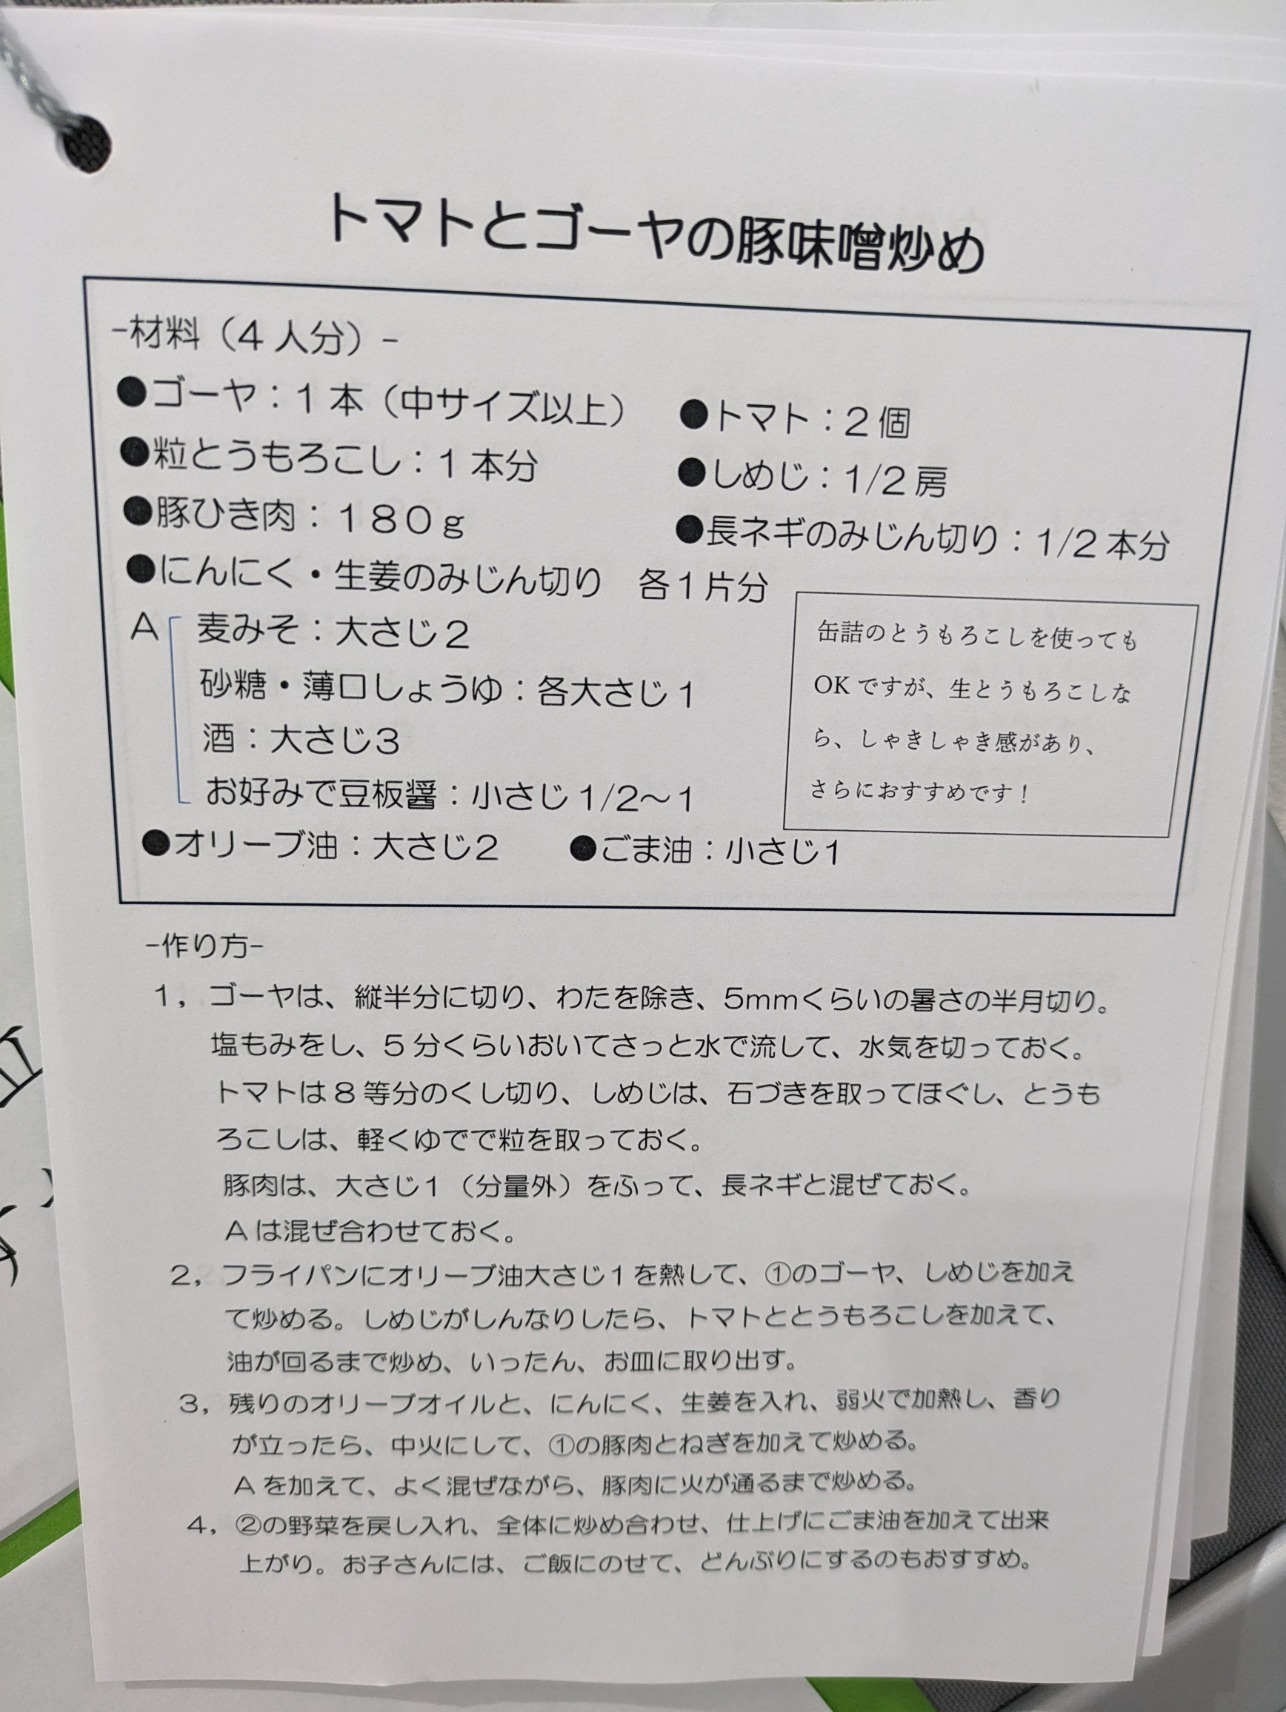 トマトとゴーヤの豚味噌炒め
-材料（4人分）-
●ゴーヤ：1本（中サイズ以上）　●トマト：2個
●粒とうもろこし：1本分　●しめじ：1/2房
●豚ひき肉：180g　●長ネギのみじん切り：1/2本分
●にんにく・生姜のみじん切り　各1片分
A　麦みそ：大さじ2
砂糖・薄口しょうゆ：各大さじ1
酒：大さじ3
お好みで豆板醤：小さじ1/2～1
缶詰のとうもろこしを使っても
OKですが、生とうもろこしな
ら、しゃきしゃき感があり、
さらにおすすめです！
●オリーブ油：大さじ2　●ごま油：小さじ1
-作り方-
1，ゴーヤは、縦半分に切り、わたを除き、5mmくらいの暑さの半月切り。
塩もみをし、5分くらいおいてさっと水で流して、水気を切っておく。
トマトは8等分のくし切り、しめじは、石づきを取ってほぐし、とうも
ろこしは、軽くゆでで粒を取っておく。
豚肉は、大さじ1（分量外）をふって、長ネギと混ぜておく。
Aは混ぜ合わせておく。
2，フライパンにオリーブ油大さじ1を熱して、①のゴーヤ、しめじを加え
て炒める。しめじがしんなりしたら、トマトととうもろこしを加えて、
油が回るまで炒め、いったん、お皿に取り出す。
3，残りのオリーブオイルと、にんにく、生姜を入れ、弱火で加熱し、香り
が立ったら、中火にして、①の豚肉とねぎを加えて炒める。
Aを加えて、よく混ぜながら、豚肉に火が通るまで炒める。
4，②の野菜を戻し入れ、全体に炒め合わせ、仕上げにごま油を加えて出来
上がり。お子さんには、ご飯にのせて、どんぶりにするのもおすすめ。